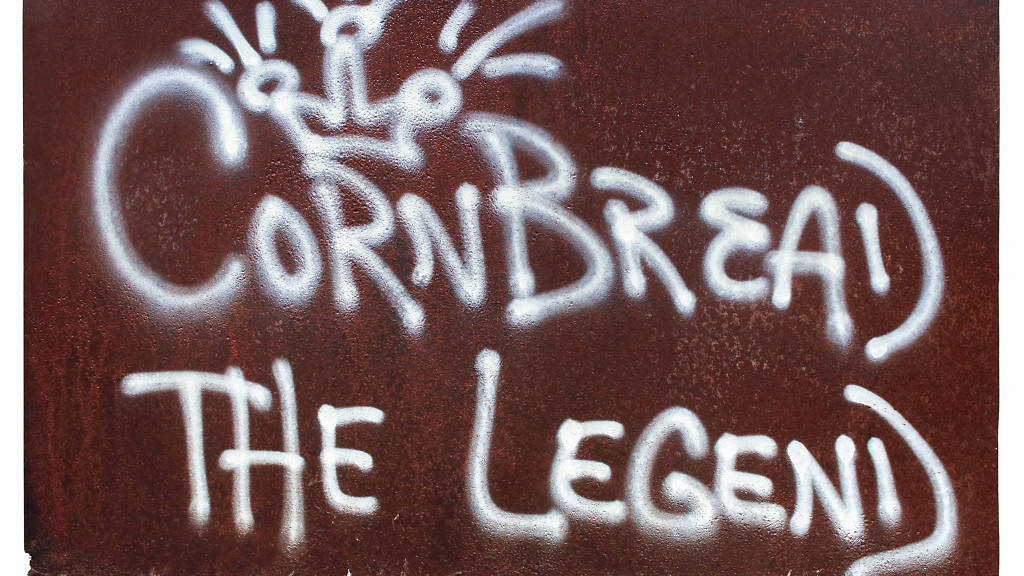 CORNBREAD
THE LEGEND